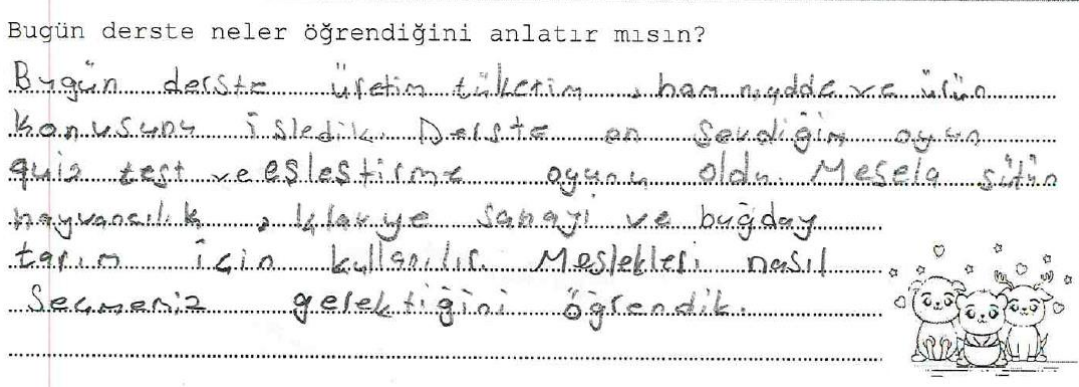 Bugün derste neler öğrendiğini anlatır mısın?
Bugün derste üretim tüketim, ham madde ve ürün
konusunu işledik. Derste en sevdiğim oyun
quiz test ve eşleştirme oyunu oldu. Mesela sütün
hayvancılık, klavye sanayi ve buğday
tarım için kullanılır. Meslekleri nasıl
seçmemiz gerektiğini öğrendik.